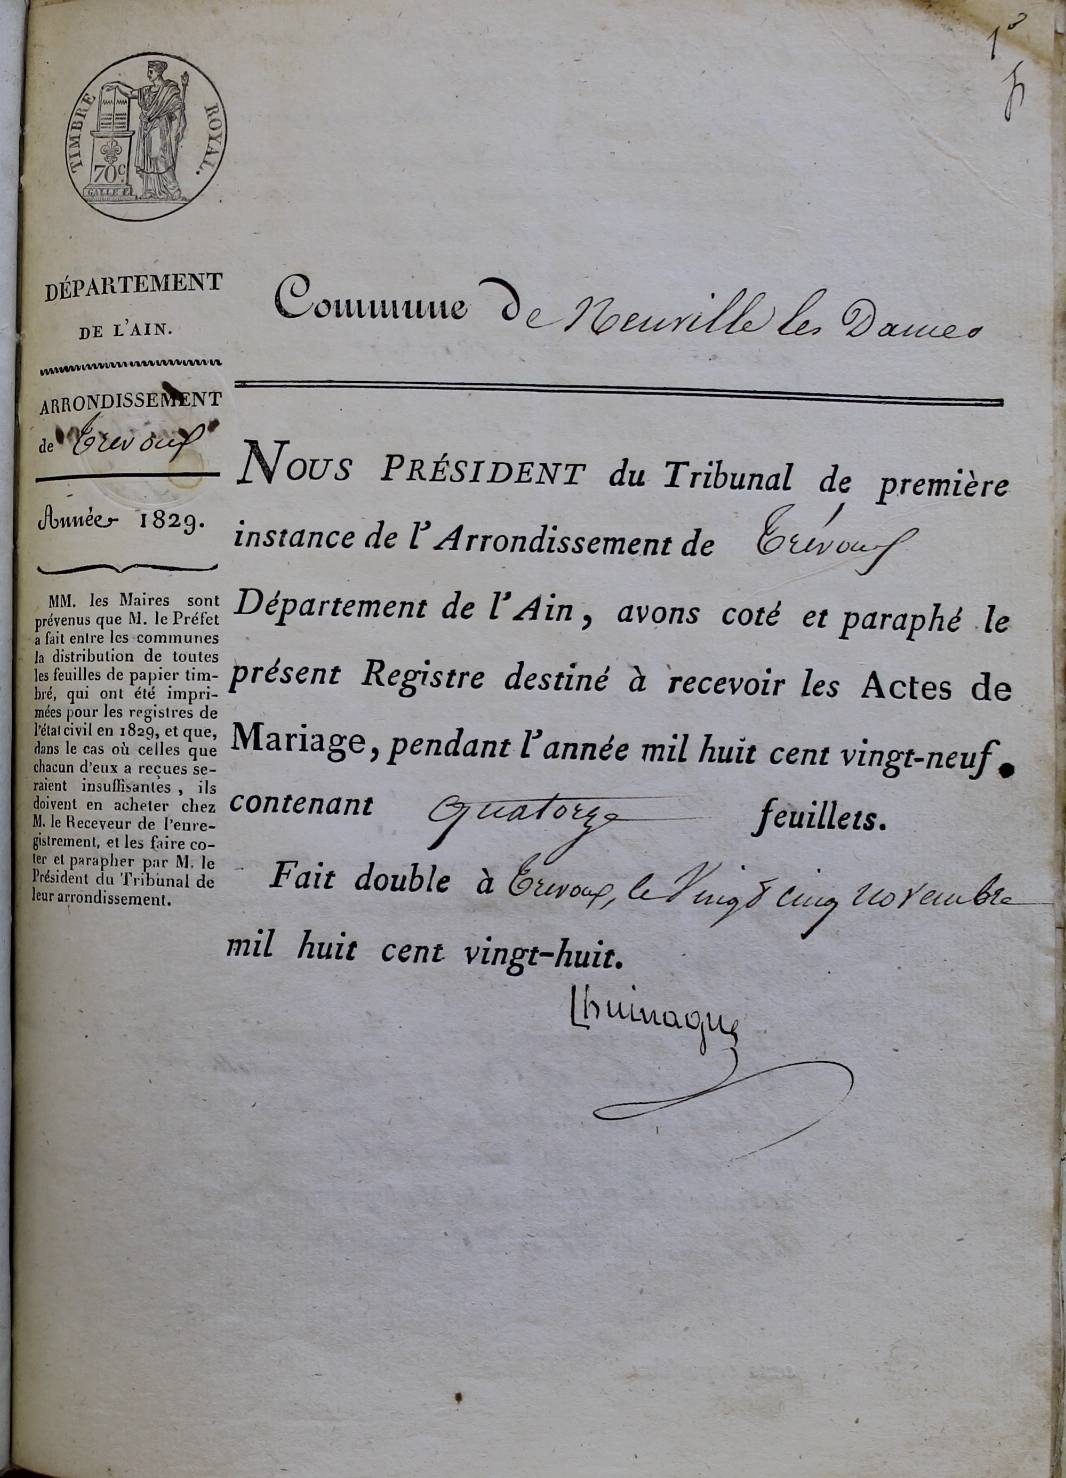 1er
TIMBRE ROYAL.
70c.
GALLE F.
DÉPARTEMENT
DE L'AIN.
ARRONDISSEMENT
de Trevoux
Année 1829.
MM. les Maires sont
prévenus que M. le Préfet
a fait entre les communes
la distribution de toutes
les feuilles de papier tim-
bré, qui ont été impri-
mées pour les registres de
l'état civil en 1829, et que,
dans le cas où celles que
chacun d'eux a reçues se-
raient insuffisantes, ils
doivent en acheter chez
M. le Receveur de l'enre-
gistrement, et les faire co-
ter et parapher par M. le
Président du Tribunal de
leur arrondissement.
Commune De Neuville les Dames
NOUS PRÉSIDENT du Tribunal de première
instance de l'Arrondissement de Trévoux
Département de l'Ain, avons coté et paraphé le
présent Registre destiné à recevoir les Actes de
Mariage, pendant l'année mil huit cent vingt-neuf.
contenant quatorze feuillets.
Fait double à Trevoux, le Vingt cinq novembre
mil huit cent vingt-huit.